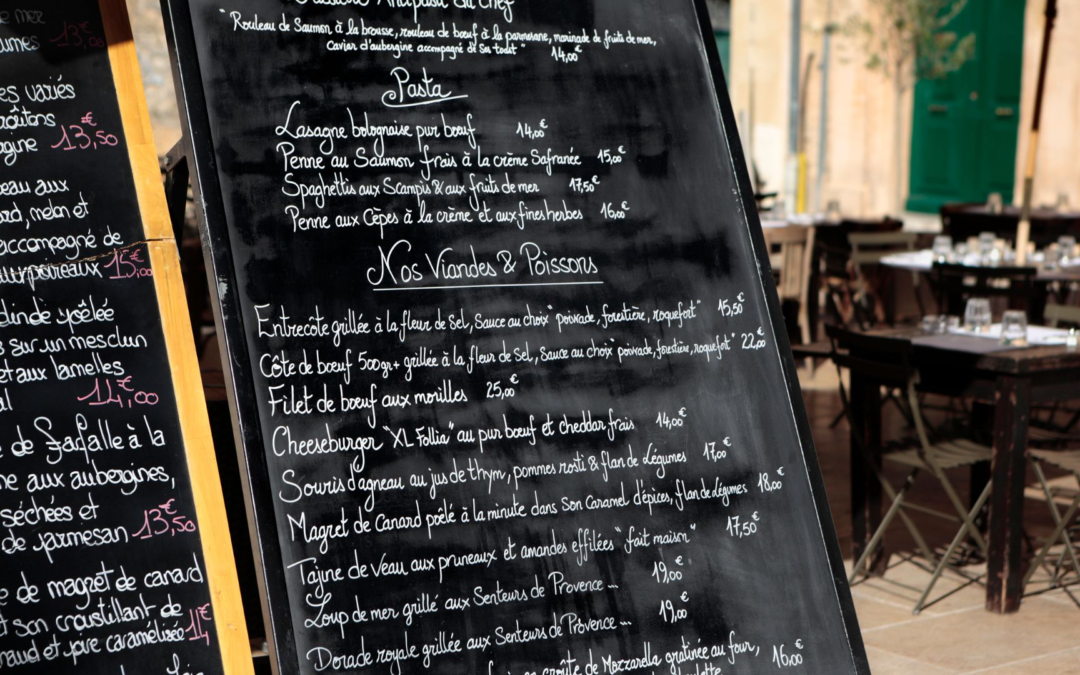 mer
umes 13,00
es variés
croûtons
13,50
eau aux
ard, melon et
accompagné de
aux poireaux 15,00
dinde poêlée
s sur un mesclun
et aux lamelles
14,00€
de Farfalle à la
ne aux aubergines,
séchées et
de parmesan 13,50€
e de magret de canard
t son croustillant de
naud et poire caramélisée 14€
du chef
"Rouleau de Saumon à la brousse, rouleau de bœuf à la parmesane, marinade de fruits de mer,
Caviar d'aubergine accompagné de Son toast" 14,00€
Pasta
Lasagne bolognaise pur bœuf 14,00€
Penne au Saumon frais à la crème Safranée 15,00€
Spaghettis aux Scampis & aux fruits de mer 17,50€
Penne aux Cèpes à la crème et aux fines herbes 16,00€
Nos Viandes & Poissons
Entrecôte grillée à la fleur de Sel, Sauce au choix "poivrade, forestière, roquefort" 15,50€
Côte de bœuf 500gr+ grillée à la fleur de Sel, Sauce au choix "poivrade, forestière, roquefort" 22,00€
Filet de bœuf aux morilles 25,00€
Cheeseburger "XL Follia" au pur bœuf et cheddar frais 14,00€
Souris d'agneau au jus de thym, pommes rosti & flan de Légumes 17,00€
Magret de Canard poêlé à la minute dans Son Caramel d'épices, flan de légumes 18,00€
Tajine de veau aux pruneaux et amandes effilées "fait maison" 17,50€
Loup de mer grillé aux Senteurs de Provence ... 19,00€
Dorade royale grillée aux Senteurs de Provence ... 19,00€
croûte de Mozzarella gratinée au four, 16,00€